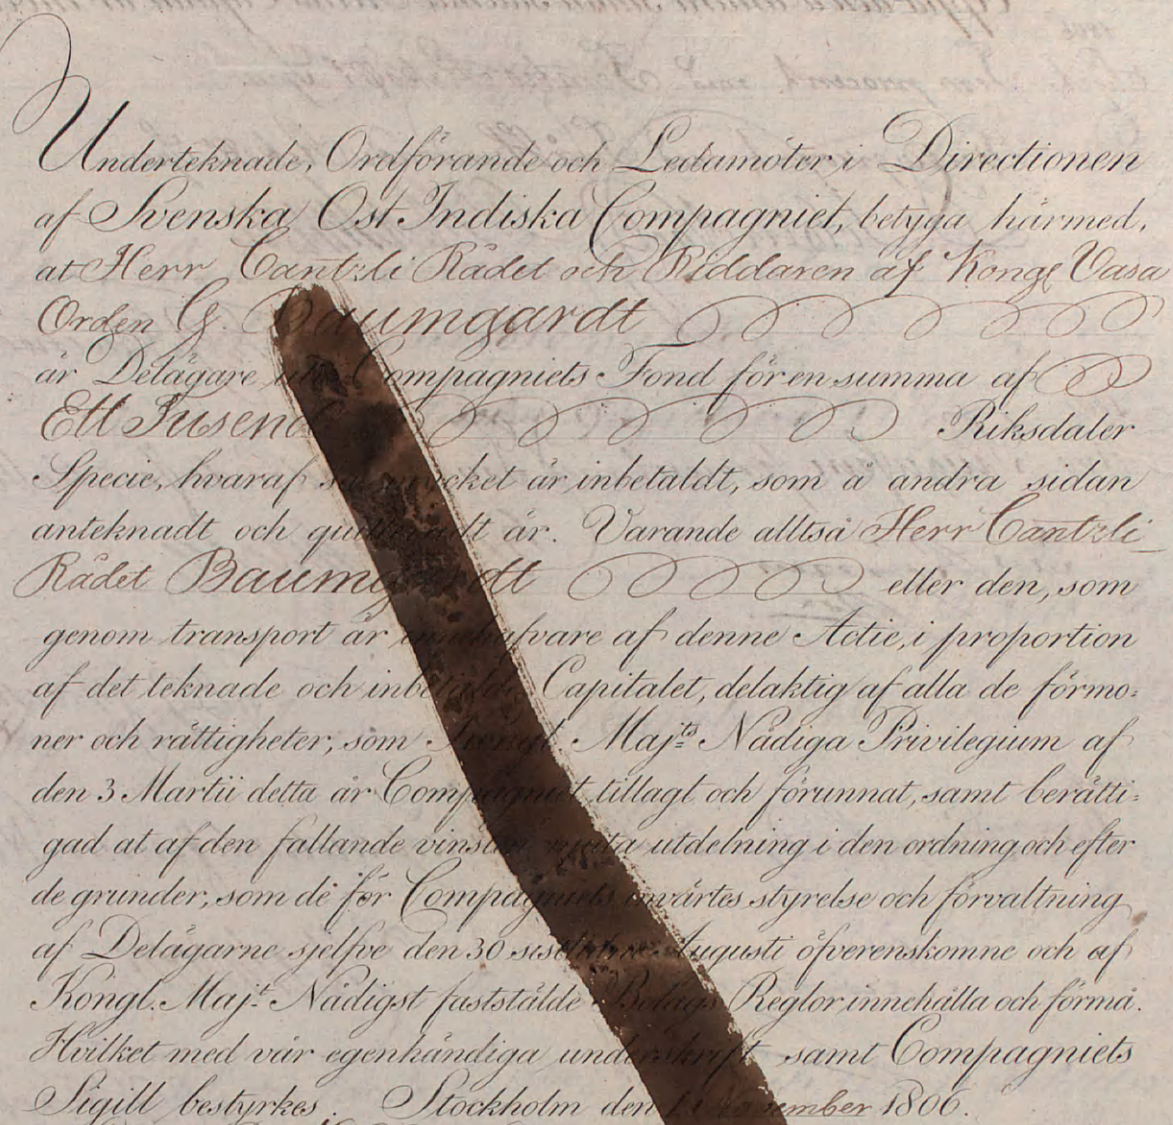 Underteknade, Ordförande och Ledamöter i Directionen
af Svenska Ost Indiska Compagniet, betyga härmed,
at Herr Cantzli Rådet och Riddaren af Kongl Vasa
Orden G. Baumgardt
är Delägare uti Compagniets Fond för en summa af
Ett Tusend Riksdaler
Specie, hvaraf så mycket är inbetaldt, som å andra sidan
anteknadt och quitteradt är. Varande alltså Herr Cantzli
Rådet Baumgardt eller den, som
genom transport är innehafvare af denne Actie, i proportion
af det teknade och inbetalda Capitalet, delaktig af alla de förmo=
ner och rättigheter, som Kongl. Maj:ts Nådiga Privilegium af
den 3 Martii detta år Compagniet tillagt och förunnat, samt berätti=
gad at af den fallande vinsten njuta utdelning i den ordning och efter
de grunder, som de för Compagniets invärtes styrelse och förvaltning
af Delägarne sjelfve den 30 sistledne Augusti öfverenskomne och af
Kongl. Maj:t Nådigst faststälde Bolags Reglor innehålla och förmå.
Hvilket med vår egenhändiga underskrift samt Compagniets
Sigill bestyrkes. Stockholm den 1806.